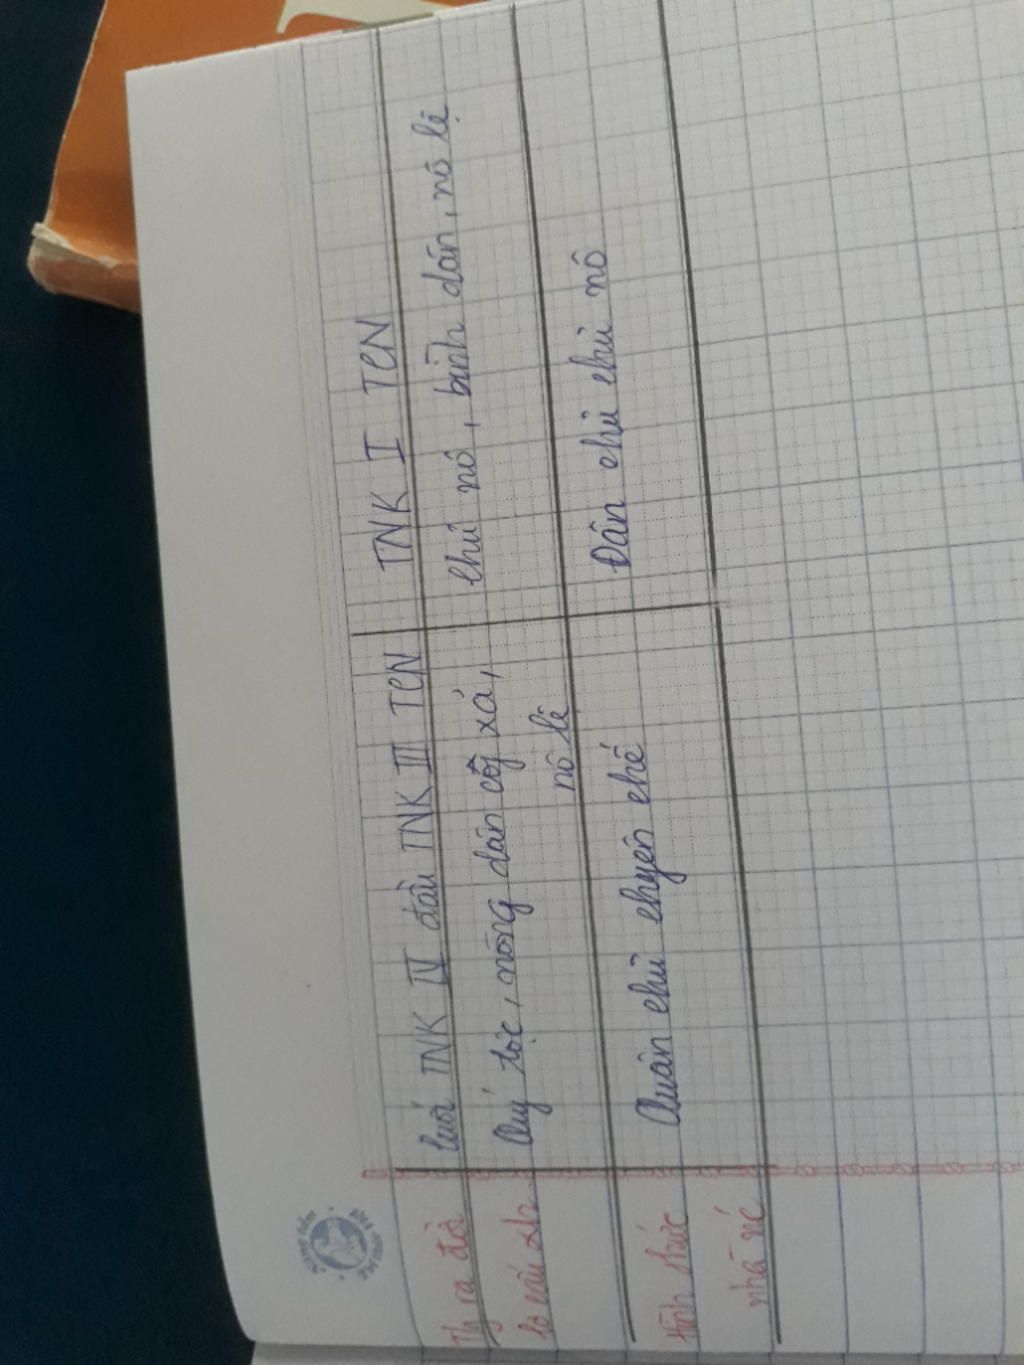 Tg ra đời
Cuối TNK IV đầu TNK III TCN
TNK I TCN
Cơ cấu xh
Quý tộc, nông dân công xã,
nô lệ
Chủ nô, bình dân, nô lệ
Hình thức
nhà nc
Quân chủ chuyên chế
Dân chủ chủ nô